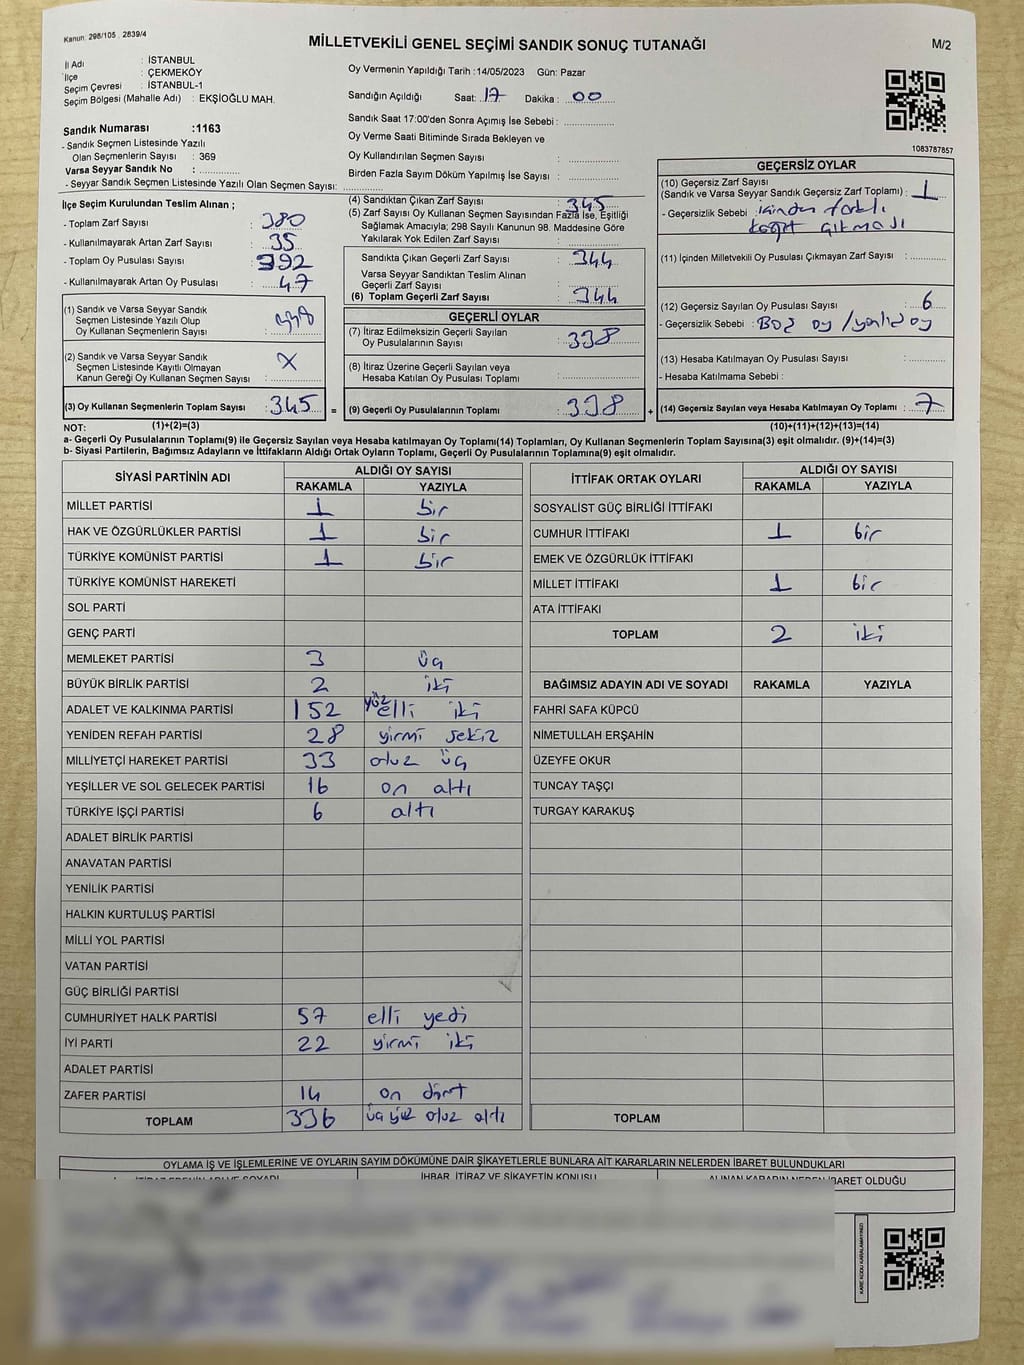 Kanun: 298/105 , 2839/4
MİLLETVEKİLİ GENEL SEÇİMİ SANDIK SONUÇ TUTANAĞI
M/2
İl Adı : İSTANBUL
İlçe : ÇEKMEKÖY
Seçim Çevresi : İSTANBUL-1
Seçim Bölgesi (Mahalle Adı) : EKŞİOĞLU MAH.
Sandık Numarası :1163
- Sandık Seçmen Listesinde Yazılı
Olan Seçmenlerin Sayısı : 369
Varsa Seyyar Sandık No : ..............
- Seyyar Sandık Seçmen Listesinde Yazılı Olan Seçmen Sayısı: ..............
Oy Vermenin Yapıldığı Tarih :14/05/2023 Gün: Pazar
Sandığın Açıldığı Saat: 17 Dakika : 00
Sandık Saat 17:00'den Sonra Açımış İse Sebebi : ..............
Oy Verme Saati Bitiminde Sırada Bekleyen ve
Oy Kullandırılan Seçmen Sayısı : ..............
Birden Fazla Sayım Döküm Yapılmış İse Sayısı : ..............
1083787857
İlçe Seçim Kurulundan Teslim Alınan ;
- Toplam Zarf Sayısı : 380
- Kullanılmayarak Artan Zarf Sayısı : 35
- Toplam Oy Pusulası Sayısı : 392
- Kullanılmayarak Artan Oy Pusulası : 47
(1) Sandık ve Varsa Seyyar Sandık
Seçmen Listesinde Yazılı Olup
Oy Kullanan Seçmenlerin Sayısı :
(2) Sandık ve Varsa Seyyar Sandık
Seçmen Listesinde Kayıtlı Olmayan
Kanun Gereği Oy Kullanan Seçmen Sayısı : X
(3) Oy Kullanan Seçmenlerin Toplam Sayısı : 345 =
(4) Sandıktan Çıkan Zarf Sayısı : 345
(5) Zarf Sayısı Oy Kullanan Seçmen Sayısından Fazla İse, Eşitliği
Sağlamak Amacıyla; 298 Sayılı Kanunun 98. Maddesine Göre
Yakılarak Yok Edilen Zarf Sayısı : ..............
Sandıkta Çıkan Geçerli Zarf Sayısı : 344
Varsa Seyyar Sandıktan Teslim Alınan
Geçerli Zarf Sayısı : ..............
(6) Toplam Geçerli Zarf Sayısı : 344
GEÇERLİ OYLAR
(7) İtiraz Edilmeksizin Geçerli Sayılan
Oy Pusulalarının Sayısı : 338
(8) İtiraz Üzerine Geçerli Sayılan veya
Hesaba Katılan Oy Pusulası Toplamı : ..............
(9) Geçerli Oy Pusulalarının Toplamı : 338 +
GEÇERSİZ OYLAR
(10) Geçersiz Zarf Sayısı
(Sandık ve Varsa Seyyar Sandık Geçersiz Zarf Toplamı) : 1
- Geçersizlik Sebebi : içinden farklı
kağıt çıkması
(11) İçinden Milletvekili Oy Pusulası Çıkmayan Zarf Sayısı : ..............
(12) Geçersiz Sayılan Oy Pusulası Sayısı : 6
- Geçersizlik Sebebi : Boş oy / yanlış oy
(13) Hesaba Katılmayan Oy Pusulası Sayısı : ..............
- Hesaba Katılmama Sebebi :
(14) Geçersiz Sayılan veya Hesaba Katılmayan Oy Toplamı : 7
NOT: (1)+(2)=(3) (10)+(11)+(12)+(13)=(14)
a- Geçerli Oy Pusulalarının Toplamı(9) ile Geçersiz Sayılan veya Hesaba katılmayan Oy Toplamı(14) Toplamları, Oy Kullanan Seçmenlerin Toplam Sayısına(3) eşit olmalıdır. (9)+(14)=(3)
b- Siyasi Partilerin, Bağımsız Adayların ve İttifakların Aldığı Ortak Oyların Toplamı, Geçerli Oy Pusulalarının Toplamına(9) eşit olmalıdır.
SİYASİ PARTİNİN ADI ALDIĞI OY SAYISI
RAKAMLA YAZIYLA
MİLLET PARTİSİ 1 bir
HAK VE ÖZGÜRLÜKLER PARTİSİ 1 bir
TÜRKİYE KOMÜNİST PARTİSİ 1 bir
TÜRKİYE KOMÜNİST HAREKETİ
SOL PARTİ
GENÇ PARTİ
MEMLEKET PARTİSİ 3 üç
BÜYÜK BİRLİK PARTİSİ 2 iki
ADALET VE KALKINMA PARTİSİ 152 yüz elli iki
YENİDEN REFAH PARTİSİ 28 yirmi sekiz
MİLLİYETÇİ HAREKET PARTİSİ 33 otuz üç
YEŞİLLER VE SOL GELECEK PARTİSİ 16 on altı
TÜRKİYE İŞÇİ PARTİSİ 6 altı
ADALET BİRLİK PARTİSİ
ANAVATAN PARTİSİ
YENİLİK PARTİSİ
HALKIN KURTULUŞ PARTİSİ
MİLLİ YOL PARTİSİ
VATAN PARTİSİ
GÜÇ BİRLİĞİ PARTİSİ
CUMHURİYET HALK PARTİSİ 57 elli yedi
İYİ PARTİ 22 yirmi iki
ADALET PARTİSİ
ZAFER PARTİSİ 14 on dört
TOPLAM 336 üç yüz otuz altı
İTTİFAK ORTAK OYLARI ALDIĞI OY SAYISI
RAKAMLA YAZIYLA
SOSYALİST GÜÇ BİRLİĞİ İTTİFAKI
CUMHUR İTTİFAKI 1 bir
EMEK VE ÖZGÜRLÜK İTTİFAKI
MİLLET İTTİFAKI 1 bir
ATA İTTİFAKI
TOPLAM 2 iki
BAĞIMSIZ ADAYIN ADI VE SOYADI RAKAMLA YAZIYLA
FAHRİ SAFA KÜPCÜ
NİMETULLAH ERŞAHİN
ÜZEYFE OKUR
TUNCAY TAŞÇI
TURGAY KARAKUŞ
TOPLAM
OYLAMA İŞ VE İŞLEMLERİNE VE OYLARIN SAYIM DÖKÜMÜNE DAİR ŞİKAYETLERLE BUNLARA AİT KARARLARIN NELERDEN İBARET BULUNDUKLARI
İHBAR, İTİRAZ VE ŞİKAYETİN KONUSU
ALINAN KARARIN NEDEN İBARET OLDUĞU
KARE KODU KARALAMAYINIZ!